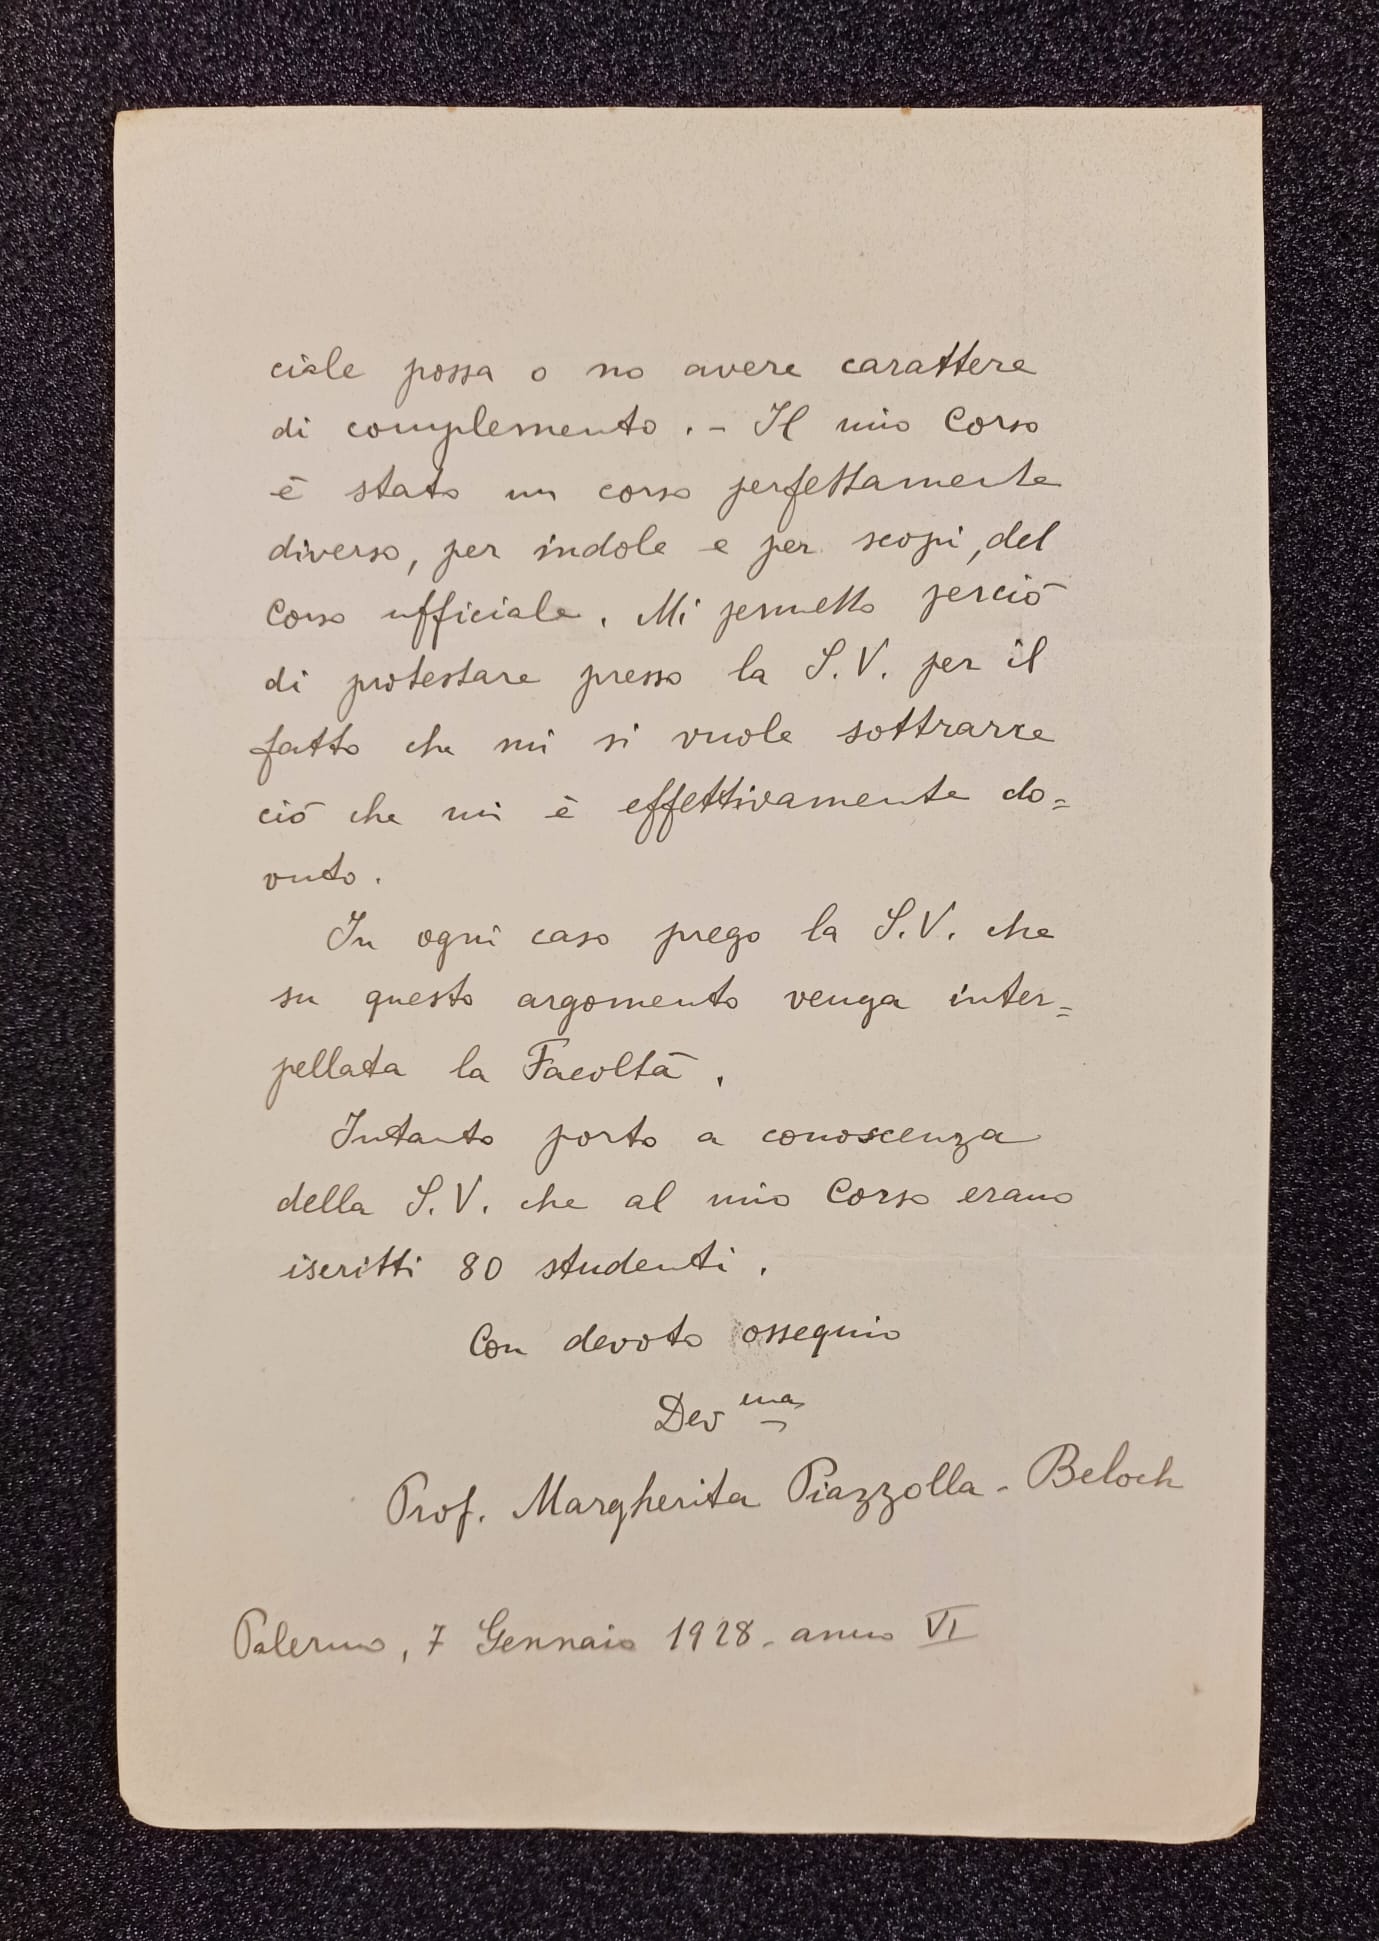 ciale possa o no avere carattere
di complemento. - Il mio Corso
è stato un corso perfettamente
diverso, per indole e per scopi, del
Corso ufficiale. Mi permetto perciò
di protestare presso la S.V. per il
fatto che mi si vuole sottrarre
ciò che mi è effettivamente do=
vuto.
In ogni caso prego la S.V. che
su questo argomento venga inter=
pellata la Facoltà.
Intanto porto a conoscenza
della S.V. che al mio Corso erano
iscritti 80 studenti.
Con devoto ossequio
Dev ma
Prof. Margherita Piazzolla - Beloch
Palermo, 7 Gennaio 1928 - anno VI